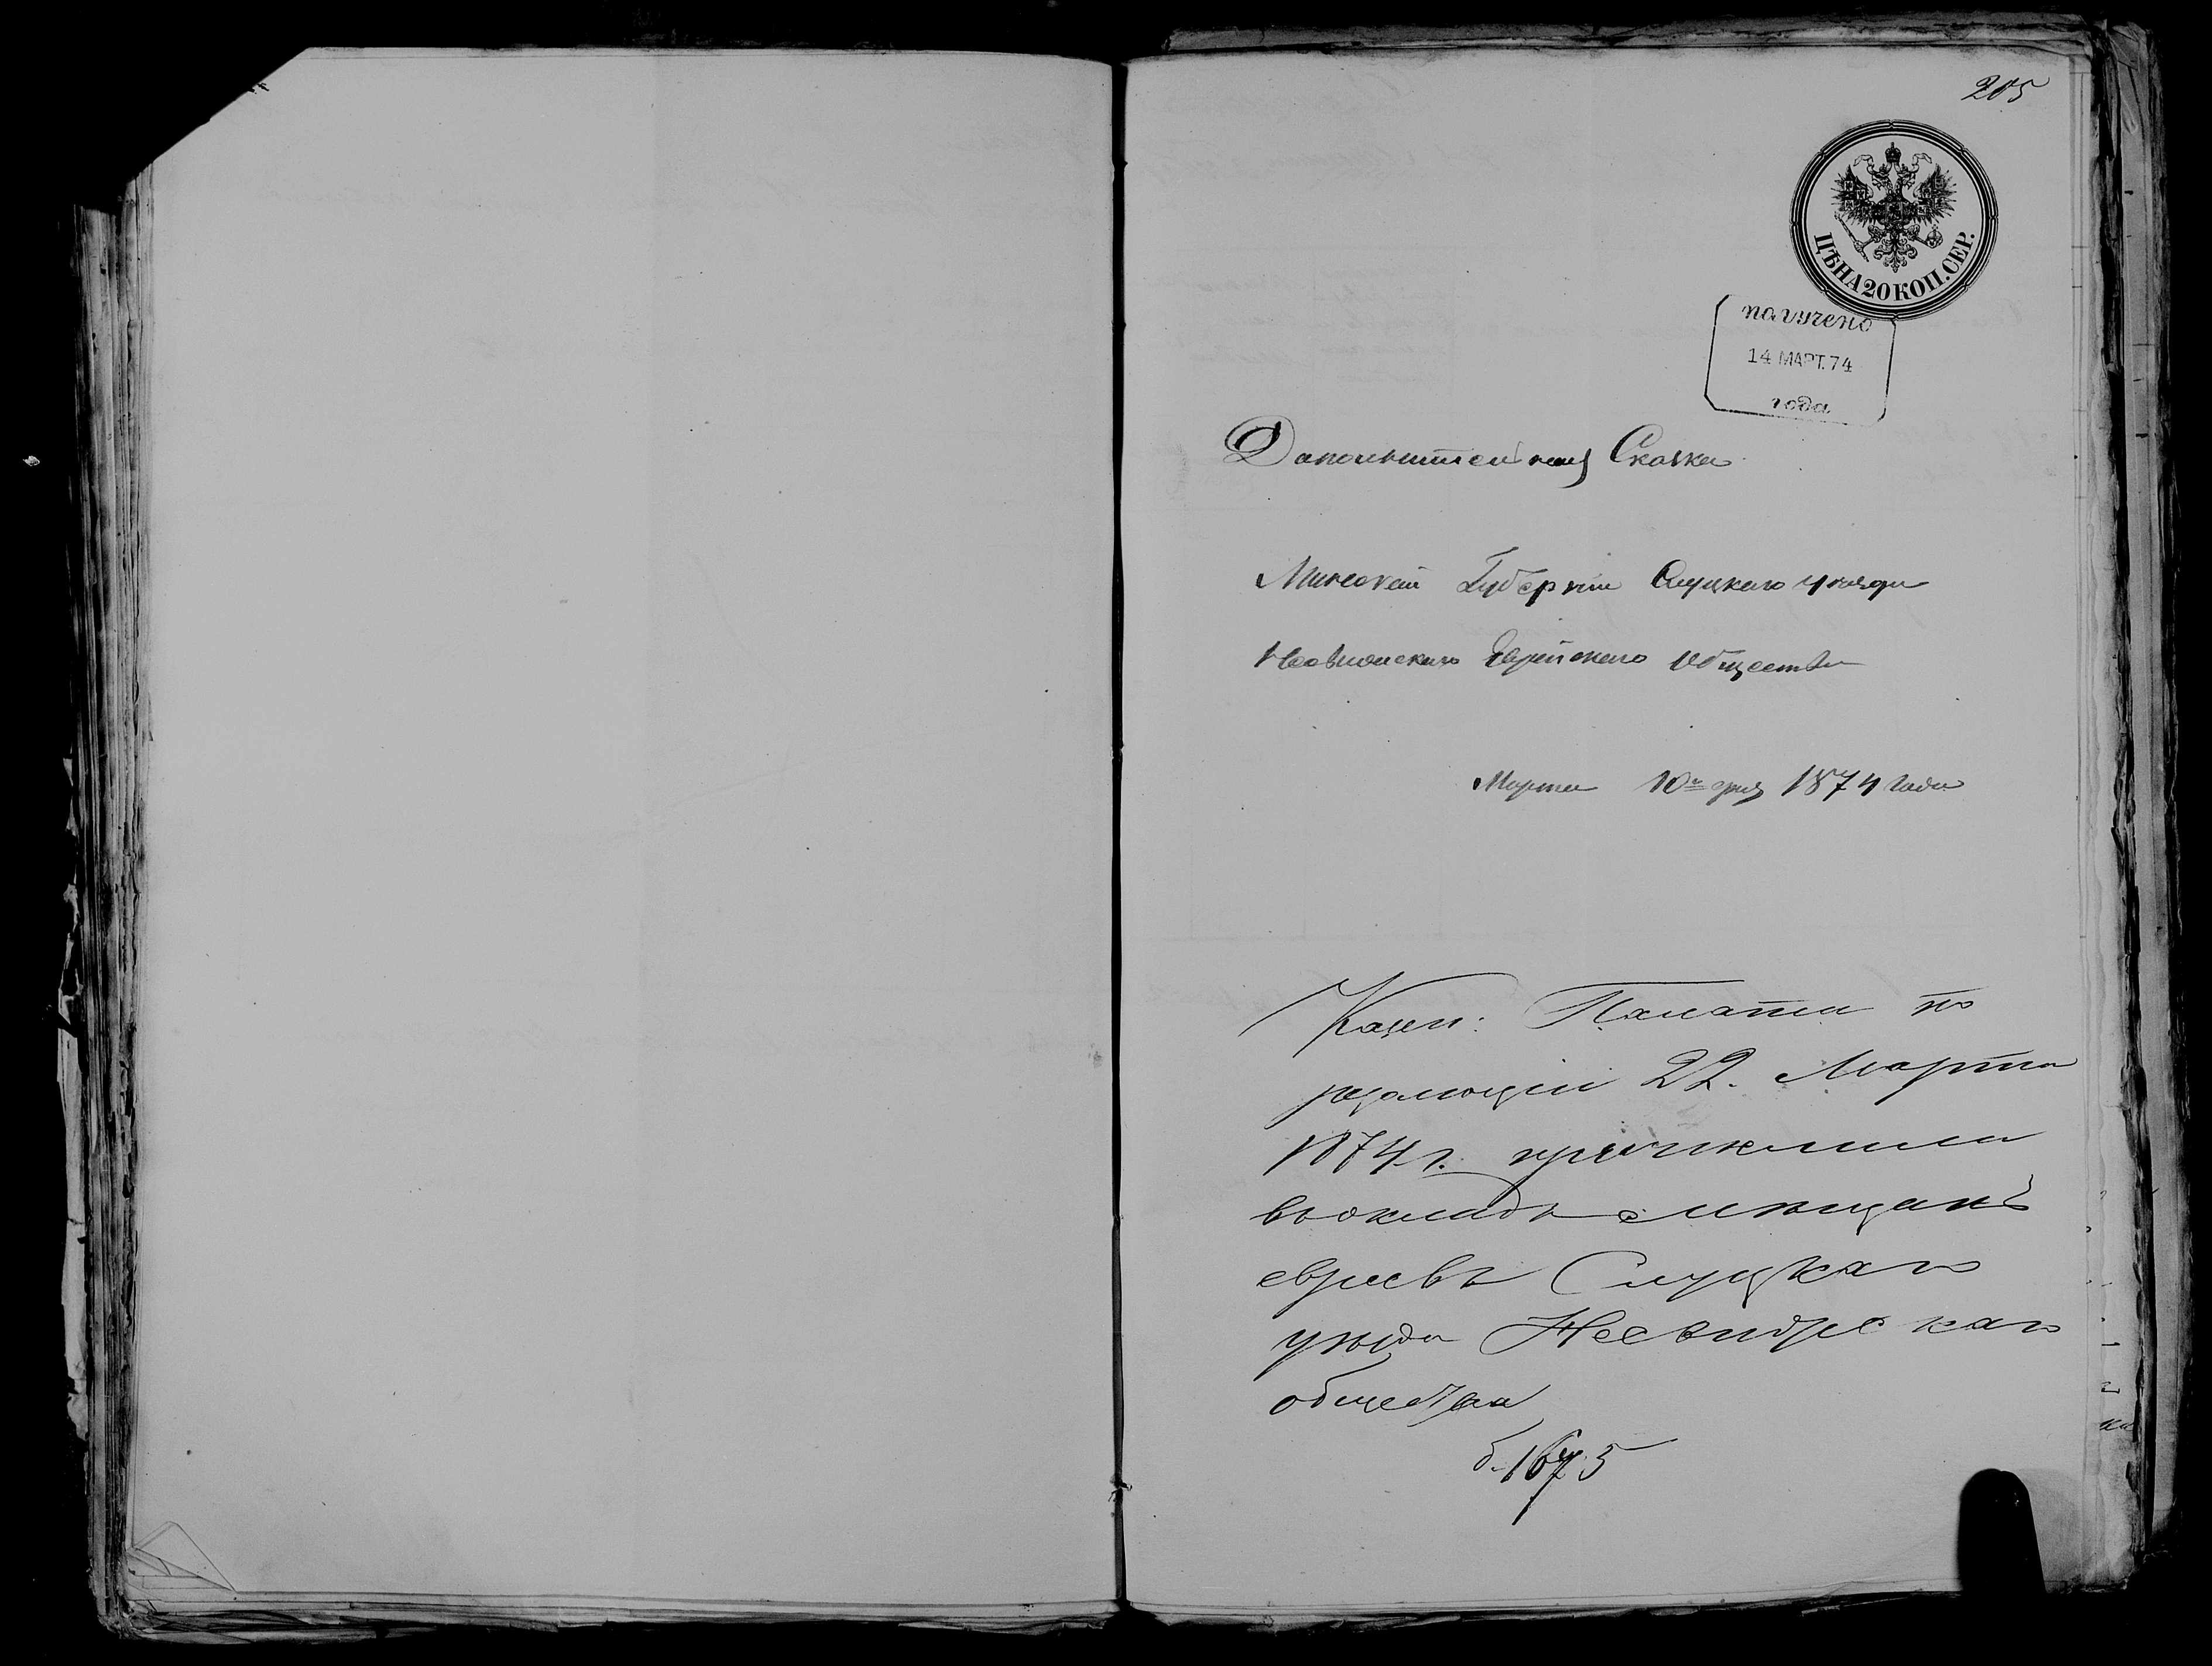 205
ЦѢНА 20 КОП. СЕР.
получено
14 МАРТ. 74
года
Дополнительная Сказка
Минской Губернии Слуцкаго уезда
Несвижскаго Еврейскаго Общества
Марта 10го дня 1874 года
Казен: Палата по
резолюціи 22. Марта
1874 г. причислила
въ окладъ мѣщанъ
евреевъ Слуцкаго
уѣзда Несвижскаго
общества